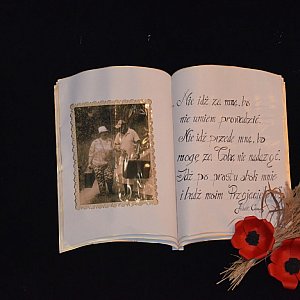 Nie idź za mną, bo
nie umiem prowadzić.
Nie idź przede mną, bo
mogę za Tobą nie nadążyć.
Idź po prostu obok mnie
i bądź moim Przyjacielem